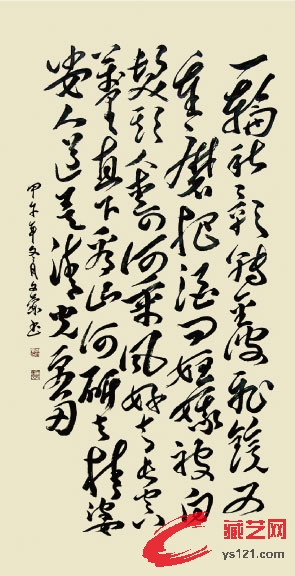 一輪秋影轉金波飛鏡又
重磨把酒問姮娥被白
髮欺人奈何乘風好去長空
萬里直下看山河斫去桂婆
娑人道是清光更多
甲午年冬月文書
藏艺网
ys121.com